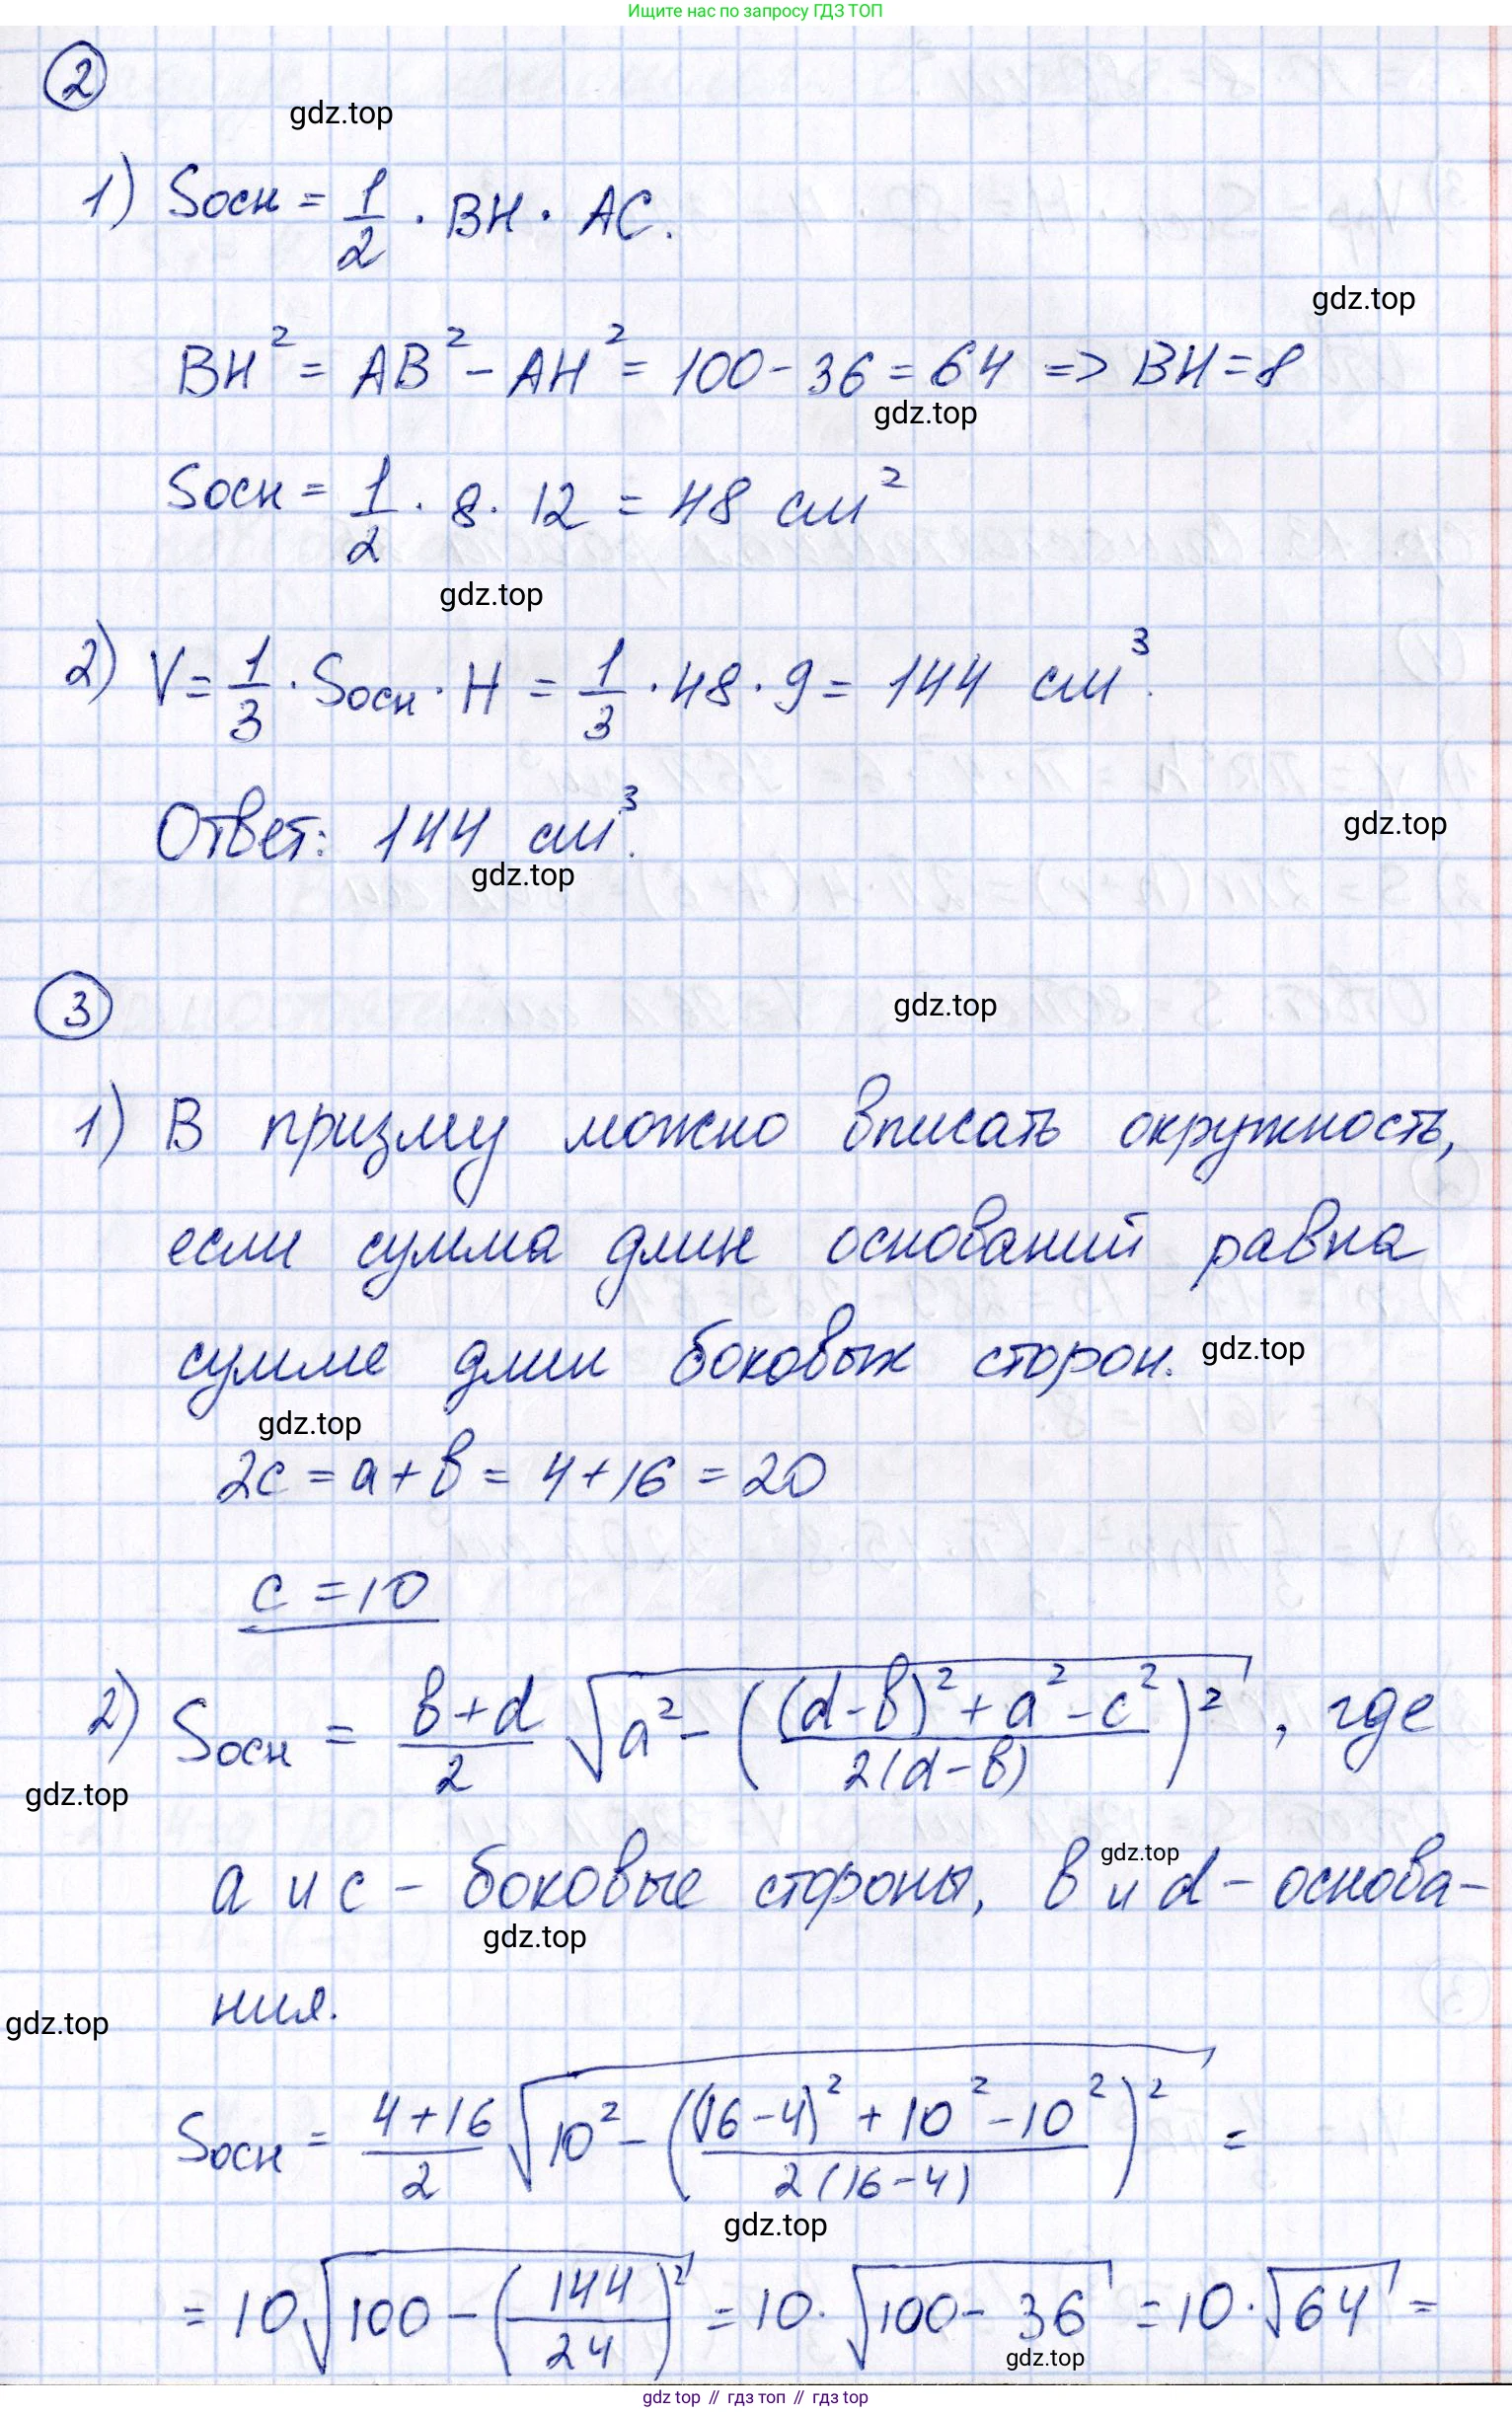 Ищите нас по запросу ГДЗ ТОП
②
gdz.top
1) Sосн = 1/2 · BH · AC.
gdz.top
BH² = AB² - AH² = 100 - 36 = 64 => BH = 8
gdz.top
Sосн = 1/2 · 8 · 12 = 48 см²
gdz.top
2) V = 1/3 · Sосн · H = 1/3 · 48 · 9 = 144 см³.
Ответ: 144 см³.
gdz.top
gdz.top
③
gdz.top
1) В призму можно вписать окружность,
если сумма длин оснований равна
сумме длин боковых сторон.
gdz.top
gdz.top
2c = a + b = 4 + 16 = 20
c = 10
2) Sосн = (b+d)/2 √(a² - (((d-b)² + a² - c²)/(2(d-b)))²), где
gdz.top
a и c - боковые стороны, b и d - основа-
gdz.top
gdz.top
ния.
gdz.top
Sосн = (4+16)/2 √(10² - (((16-4)² + 10² - 10²)/(2(16-4)))²) =
gdz.top
= 10√(100 - (144/24)²) = 10 · √(100 - 36) = 10 · √64 =
gdz.top
gdz top // гдз топ // гдз top